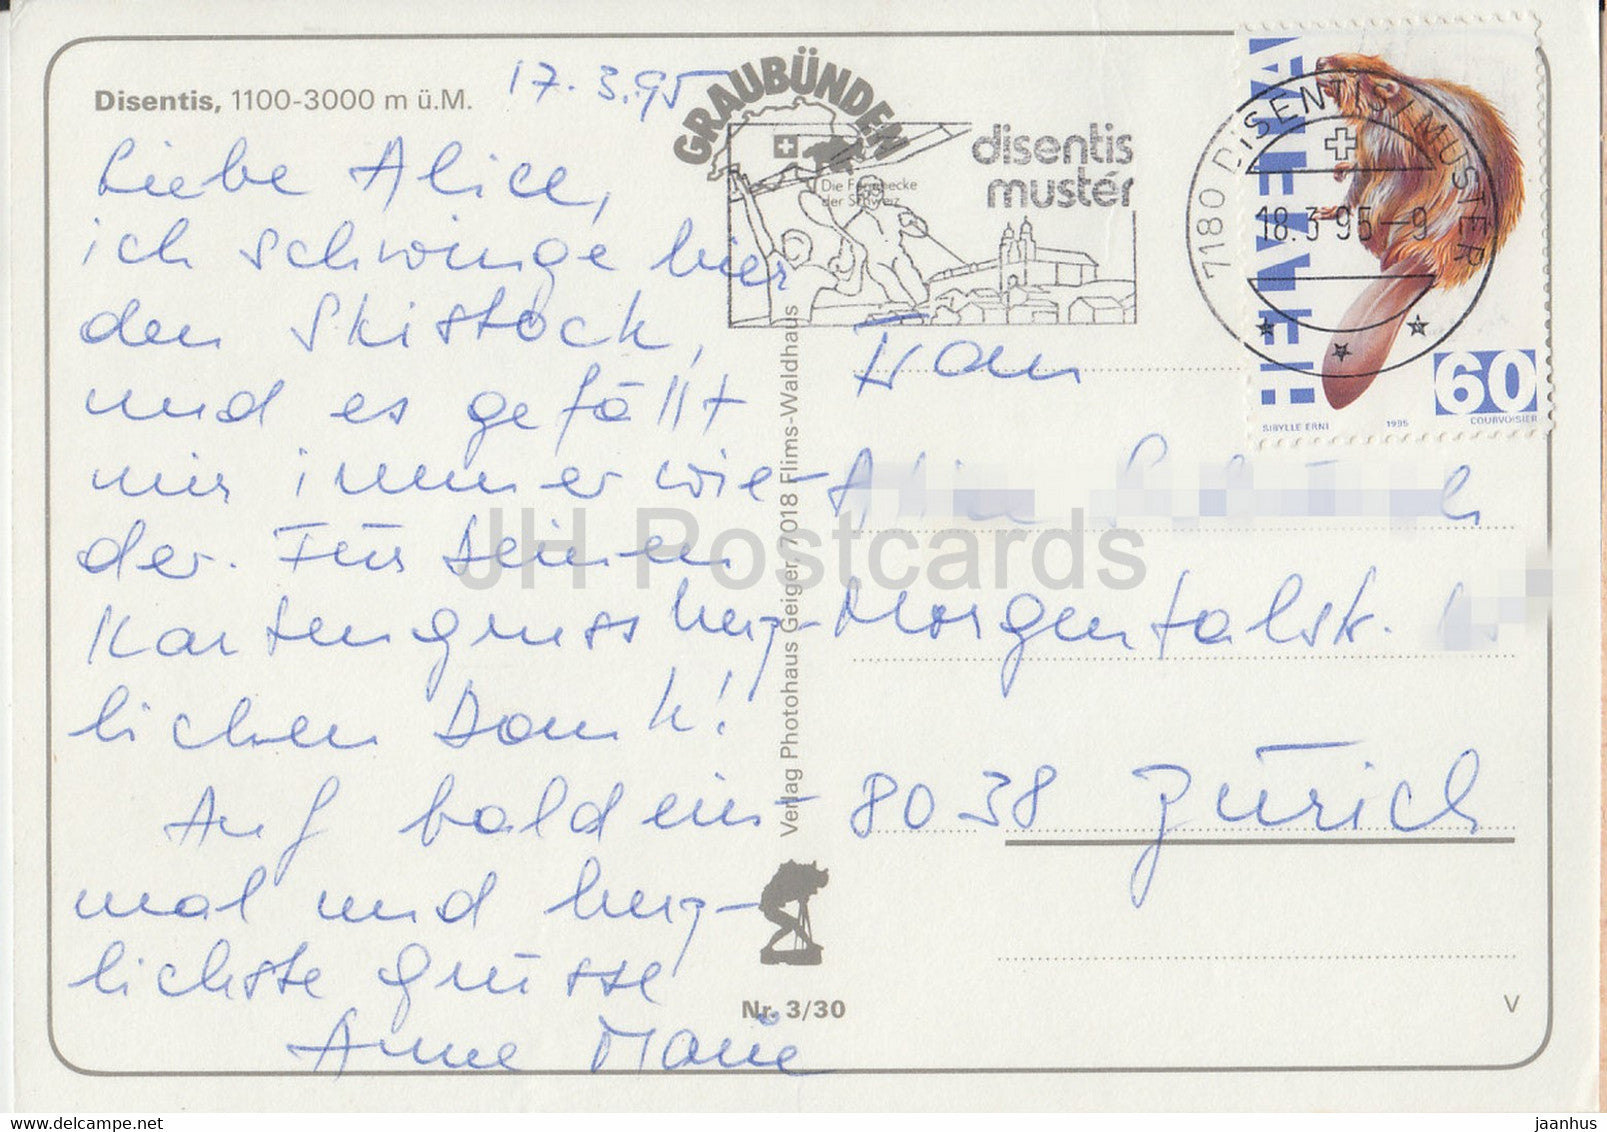 Disentis, 1100-3000 m ü.M.
17.3.95
Liebe Alice,
ich schwinge hier
den Skistock,
und es gefällt
mir immer wie-
der. Für Deinen
Kartengruss herz-
lichen Dank!
Auf bald ein-
mal und herz-
lichste Grüsse
Anne Marie
GRAUBÜNDEN
Die Ferienecke
der Schweiz
disentis
mustér
7180 DISENTIS / MUSTER
18.3.95-9
HELVETIA
60
SIBYLLE ERNI 1995 COURVOISIER
Frau
Morgentalstr.
8038 Zürich
Verlag Photohaus Geiger, 7018 Flims-Waldhaus
Nr. 3/30
V
JH Postcards
delcampe.net
jaanhus